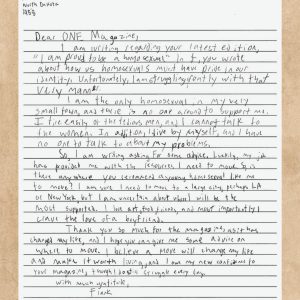 North Dakota
1958
Dear ONE Magazine,
I am writing regarding your latest edition,
"I am proud to be a homosexual" In it, you wrote
about how us homosexuals must have pride in our
identity. Unfortunately, I am struggling with that
very manner.
I am the only homosexual in my very
small town, and there is no one around to support me.
I the men, and I cannot talk to
the women. In addition, I live by myself, and I have
no one to talk to about my problems.
So, I am writing asking for some advise. Luckily, my job
has provided me with the resources I need to move. So is
there anywhere you recommend a young homosexual like me
to move? I am sure I need to move to a large city, perhaps LA
or New York, but I am uncertain about where I will be the
most supported. I love art, and most importantly I
crave the love of a boyfriend.
Thank you so much for the magazine, as it has
changed my life, and I hope you can give me some advise on
where to move. I believe a move will change my life
and make it worth living, and I am new
your magazine, though I every day.
With much gratitude,
Frank